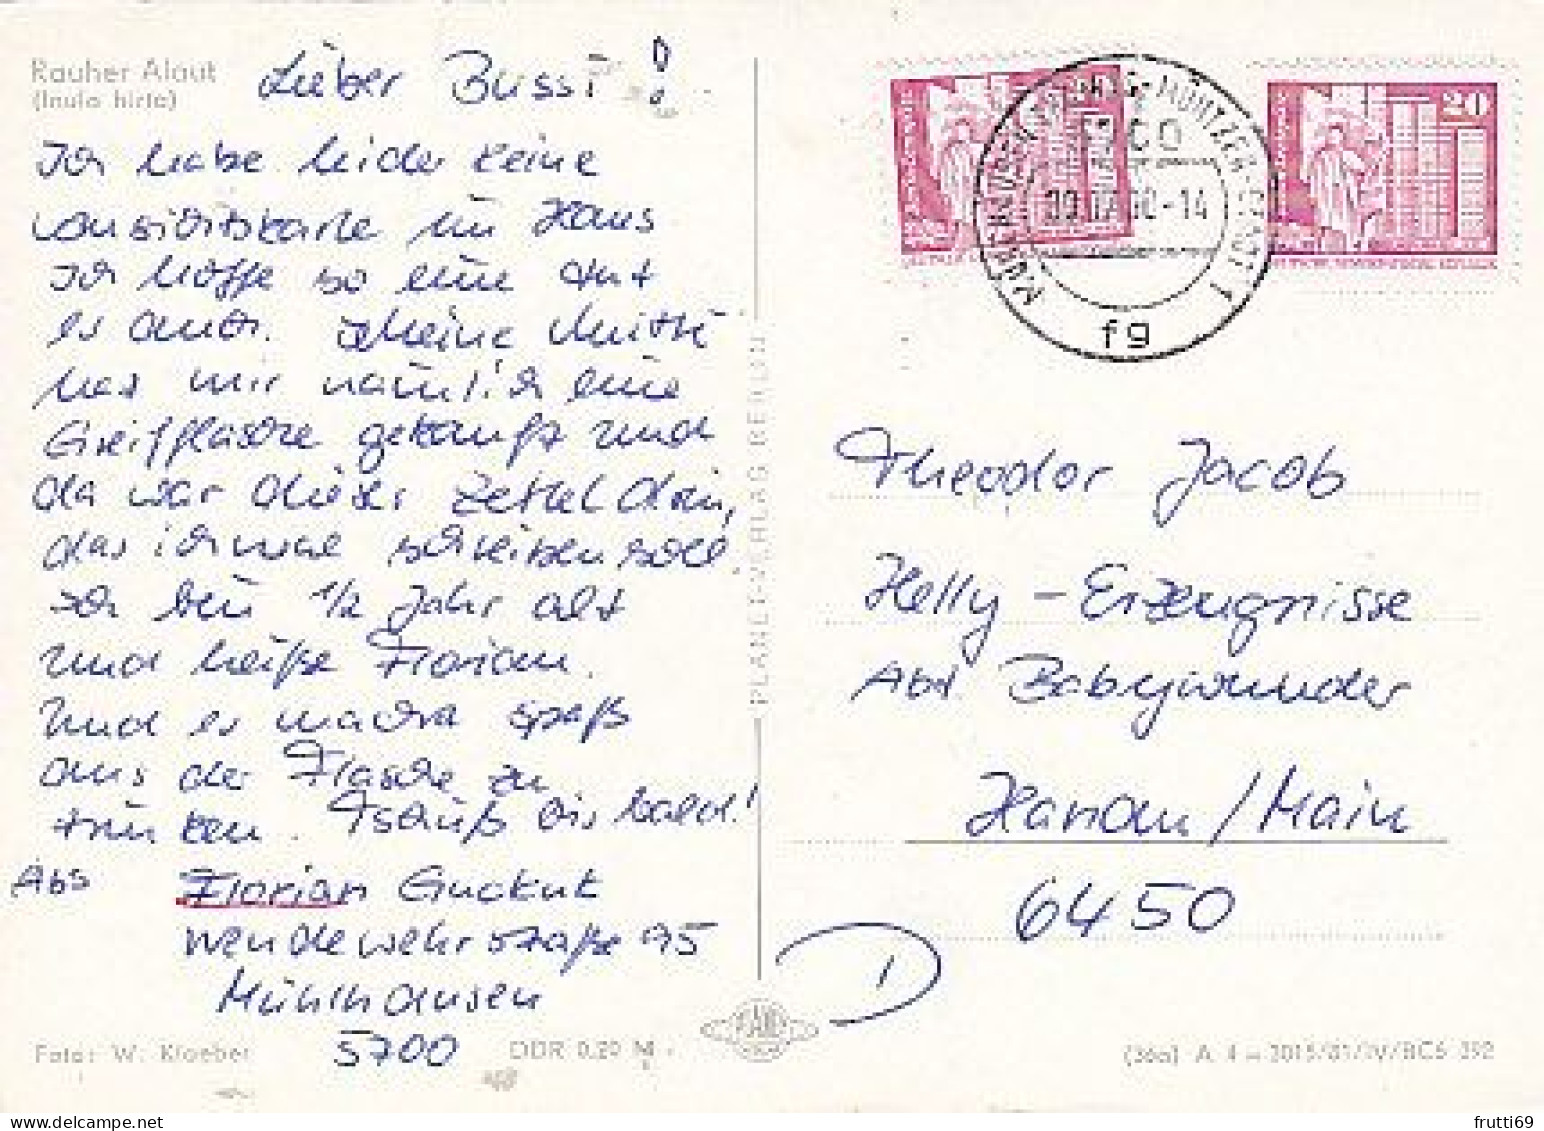 Rauher Alant
(Inula hirta)
Lieber Bussi!
Ich habe leider keine
Lansichtskarte im Haus
Ich hoffe so eine tut
es auch. Meine Mutti
hat mir nämlich eine
Greifflasche gekauft und
da war dieser Zettel drin,
das ich mal schreiben soll
Ich bin 1/2 Jahr alt
und heiße Florian.
Und es macht spaß
aus der Flasche zu
trinken. Tschüß bis bald!
Abs Florian Guckuk
Wendewehrstraße 95
Mühlhausen
5700
Foto: W. Kloeber
DDR 0,20 M
PLANET-VERLAG BERLIN
PLANET
20
5700
-14
fg
Theodor Jacob
Helly - Erzeugnisse
Abt Babywunder
Hanau/Main
6450
D
frutti69